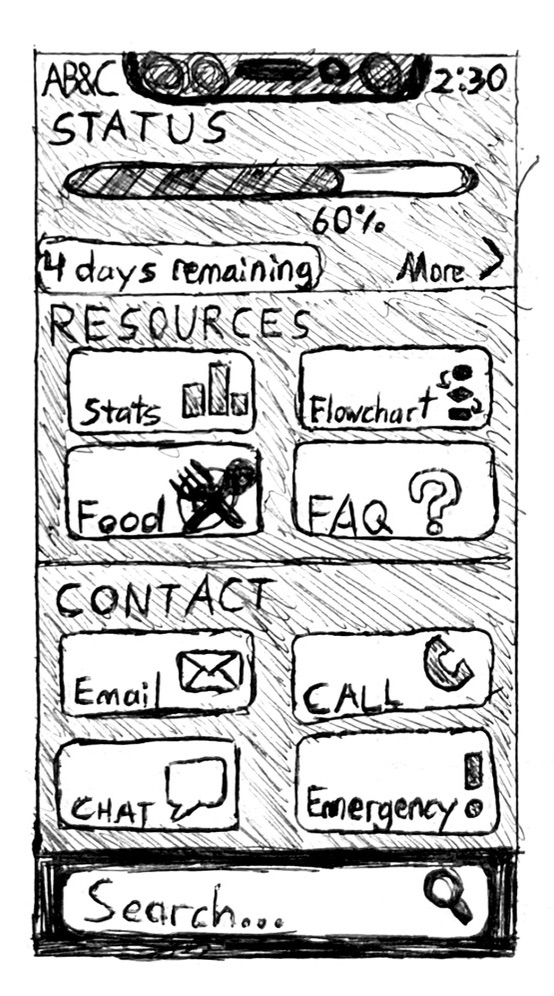 AB&C 2:30
STATUS
60%
4 days remaining More >
RESOURCES
Stats Flowchart
Food FAQ
CONTACT
Email CALL
CHAT Emergency
Search...